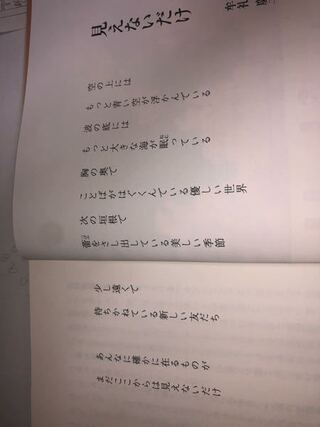 見えないだけ
牟礼
空の上には
もっと青い空が浮かんでいる
波の底には
もっと大きな海が眠っている
胸の奥で
ことばがはぐくんでいる優しい世界
次の垣根で
蕾をさし出している美しい季節
少し遠くで
待ちかねている新しい友だち
あんなに確かに在るものが
まだここからは見えないだけ